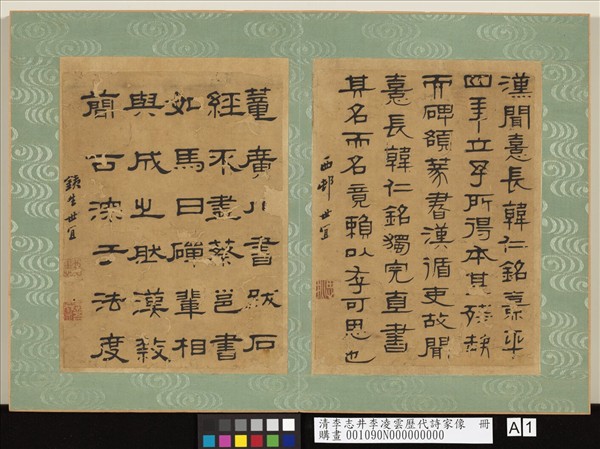 漢聞憙長韓仁銘熹平
四年立予所得本其殘缺
而碑額篆書漢循吏故聞
憙長韓仁銘獨完直書
其名而名竟賴以存可思也
西邨 世宜
董廣川書跋石
經不盡蔡邕書
如馬日磾輩相
與成之然漢隸
簡古深于法度
鐵生世宜
清李志井李凌雲歷代詩家像 冊
購畫 001090N000000000
A 1